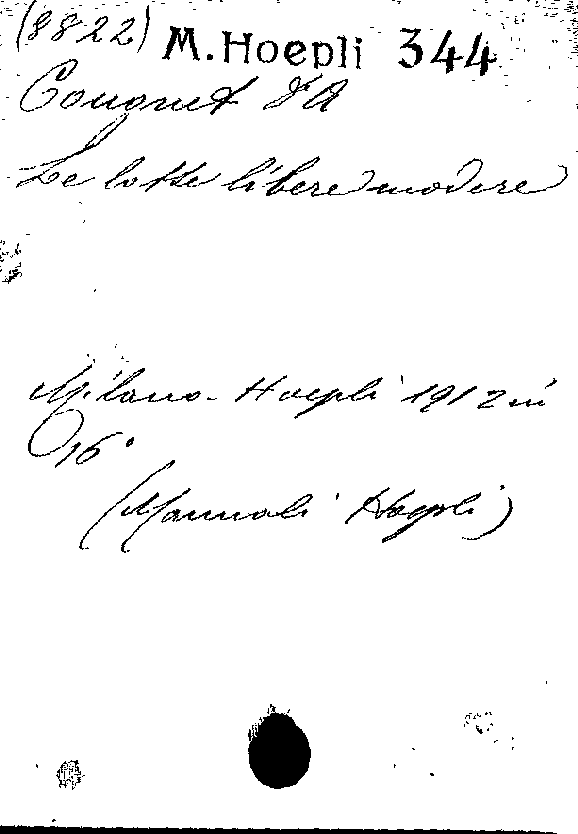 (8822) M. Hoepli 344
Cougnet &A
Le lotte libere modere
Milano - Hoepli 1912 in
16°
(Manuali Hoepli)